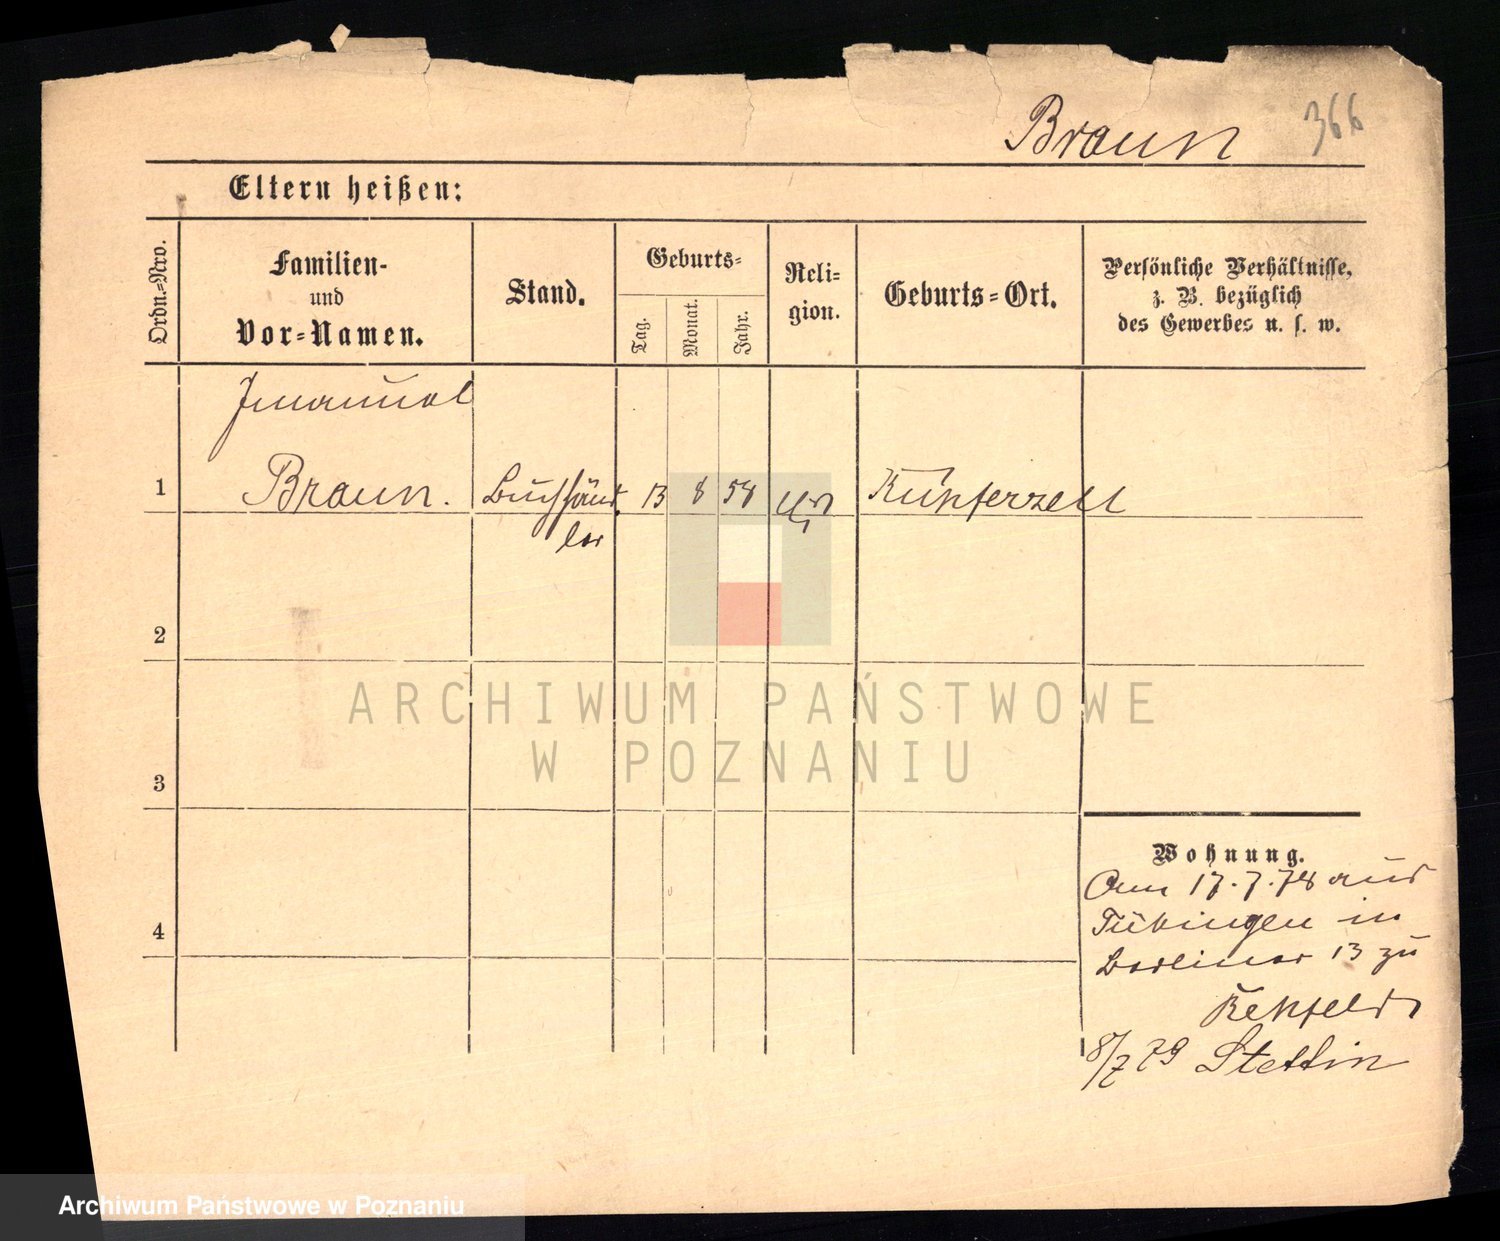 Braun 366
Eltern heißen:
Ordn.=Nro.
Familien-
und
Vor=Namen.
Stand.
Geburts=
Tag.
Monat.
Jahr.
Reli=
gion.
Geburts=Ort.
Persönliche Verhältnisse,
z. B. bezüglich
des Gewerbes u. s. w.
Immanuel
1 Braun. Buchhänd 13 8 58 Kupferzell
ler
2
3
4
Wohnung.
Am 17.7.78 aus
Tübingen in
Berliner 13 zu
8/7 79 Stettin
ARCHIWUM PAŃSTWOWE
W POZNANIU
Archiwum Państwowe w Poznaniu